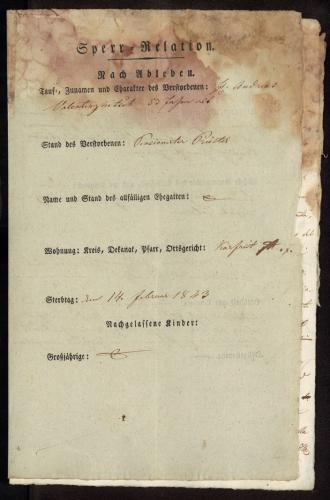 Sperr-Relation.
Nach Ableben.
Tauf-, Zunamen und Charakter des Verstorbenen: H. Andreas
57 Jahre alt
Stand des Verstorbenen: Pensionirter Priester
Name und Stand des allfälligen Ehegatten:
Wohnung: Kreis, Dekanat, Pfarr, Ortsgericht: Karfreit
Sterbtag: den 14. Februar 1843
Nachgelassene Kinder:
Großjährige: